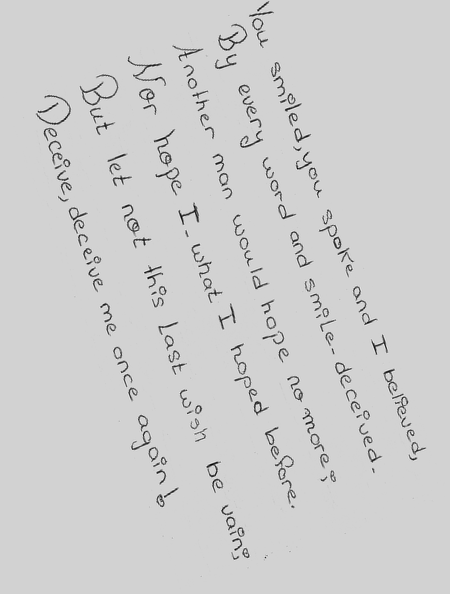 You smiled, you spoke and I believed,
By every word and smile-deceived.
Another man would hope no more;
Nor hope I-what I hoped before.
But let not this last wish be vain;
Deceive, deceive me once again!